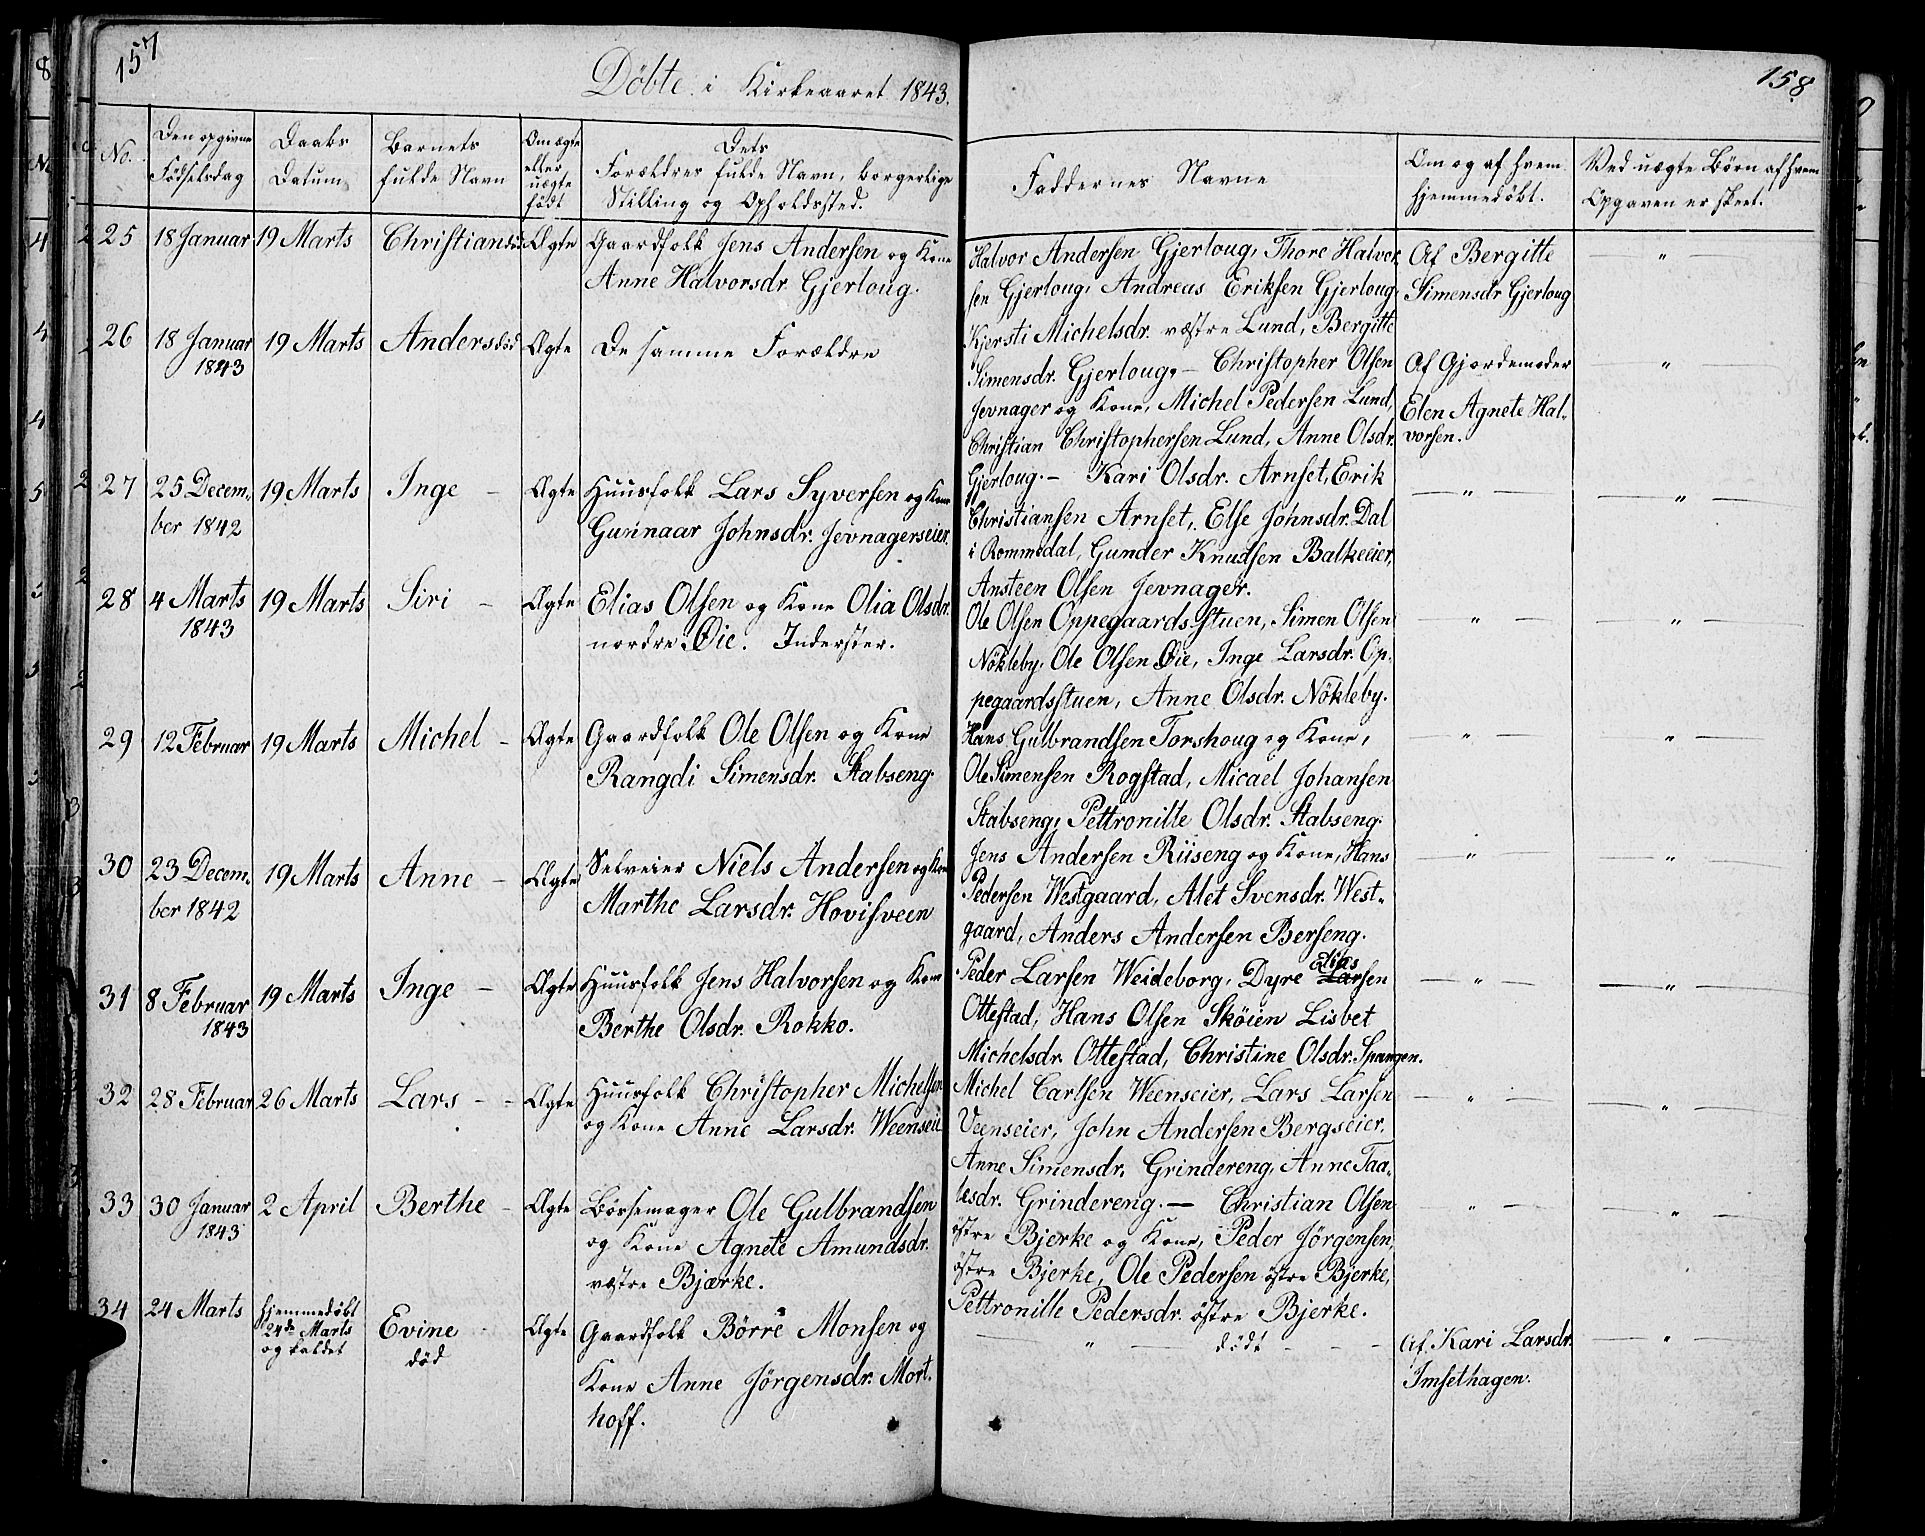 157
Döbte i Kirkeaaret 1843.
158
No.
Den opgivne
Födselsdag
Daabs
Datum
Barnets
fulde Navn
Om ægte
eller
uægte
födt
Dets
Forældres fulde Navn, borgerlige
Stilling og Opholdssted.
Faddernes Navne
Om og af hvem
hjemmedöbt.
Ved uægte Börn af hvem
Opgaven er skeet.
25 18 Januar 19 Marts Christian död Ægte Gaardfolk Jens Andersen og Kone
Anne Halvorsdr. Gjerloug.
Halvor Andersen Gjerloug, Thore Halvor
sen Gjerloug, Andreas Eriksen Gjerloug,
Kjersti Michelsdr. væstre Lund, Bergitte
Simensdr. Gjerloug, — Christopher Olsen
Af Bergitte
Simensdr Gjerloug
— " —
26 18 Januar 19 Marts Anders död Ægte De samme Forældre
1843
Jevnager og Kone, Michel Pedersen Lund,
Christian Christophersen Lund, Anne Olsdr.
Gjerloug. — Kari Olsdr. Arnset, Erik
Af Gjordemoder
Elen Agnete Hal-
vorsen.
— " —
27 25 Decem- 19 Marts Inge — Ægte Huusfolk Lars Syversen og Kone
ber 1842 Gunnaar Johnsdr. Jevnagerseier.
Christiansen Arnset, Else Johnsdr. Dal
i Rommedal, Gunder Knudsen Balkeeier,
Ansteen Olsen Jevnager.
— " — — " —
28 4 Marts 19 Marts Siri — Ægte Elias Olsen og Kone Olia Olsdr.
1843 nordre Öie. Inderster.
Ole Olsen Oppegaards Stuen, Simen Olsen
Nökleby, Ole Olsen Öie, Inge Larsdr. Op-
pegaardsstuen, Anne Olsdr. Nökleby.
" — — " —
29 12 Februar 19 Marts Michel — Ægte Gaardfolk Ole Olsen og Kone
Rangdi Simensdr. Stabseng.
Hans Gulbrandsen Torshoug og Kone,
Ole Simensen Rogstad, Micael Johansen
Stabseng, Pettronille Olsdr. Stabseng.
" — — " —
30 23 Decem- 19 Marts Anne — Ægte Selveier Niels Andersen og Kone
ber 1842 Marthe Larsdr. Hovisveen
Jens Andersen Riiseng og Kone, Hans
Pedersen Westgaard, Alet Svensdr. West-
gaard, Anders Andersen Berseng.
— " — " —
31 8 Februar 19 Marts Inge — Ægte Huusfolk Jens Halvorsen og Kone
1843 Berthe Olsdr. Rokko.
Elias
Peder Larsen Weideborg, Dyre Larsen
Ottestad, Hans Olsen Sköien Lisbet
Michelsdr. Ottestad, Christine Olsdr. Spangen.
— " — — " —
32 28 Februar 26 Marts Lars — - Ægte Huusfolk Christopher Michelsen
og Kone Anne Larsdr. Weenseie
Michel Carlsen Weenseier, Lars Larsen
Veenseier, John Andersen Bergseier,
Anne Simensdr. Grindereng, Anne Taa-
lesdr. Grindereng. — Christian Olsen
— " — — " —
33 30 Januar 2 April Berthe — Ægte Börsemager Ole Gulbrandsen
1843 og Kone Agnete Amundsdr.
væstre Bjærke.
östre Bjerke og Kone, Peder Jörgensen,
östre Bjerke, Ole Pedersen östre Bjerke,
Pettronille Pedersdr. östre Bjerke.
" — — " —
34 24 Marts hjemmedöbt Evine Ægte Gaardfolk Börre Monsen og
24de Marts död Kone Anne Jörgensdr. Mort-
og kaldet hoff.
— " — död t - - - Af Kari Larsdr. — " —
Imsethagen.